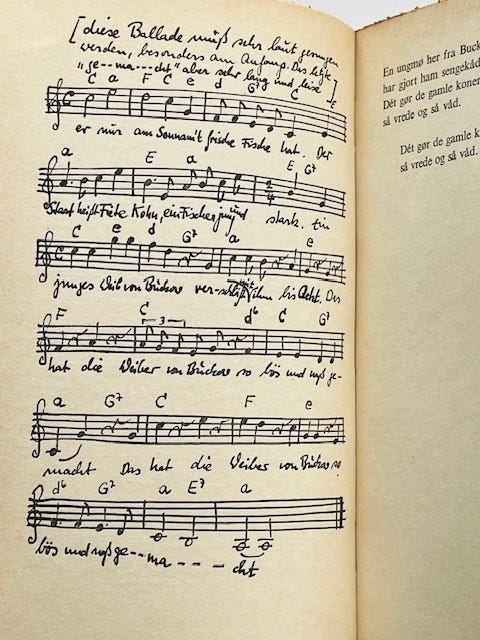 [diese Ballade muß sehr laut gesungen
werden, besonders am Anfang. Das letzte
"ge--ma---cht" aber sehr lang und leise]
C a F C e d G⁷ C E
er mir am Sonnamt frische Fische hat. Der
a E a E G⁷
Start heißt Fiete Kohn, ein Fischer jung und stark. Ein
C e d G⁷ a e
junges Weib von Buckow ver- ihm bis Acht. Das
F C 3 d⁶ C G⁷
hat die Weiber von Buckow so bös und naß ge-
a G⁷ C F e
macht Das hat die Weiber von Buckow so
d⁶ G⁷ a E⁷ a
bös und naß ge--ma - - - cht
En ungmø her fra Buck
har gjort ham sengekåd
Dét gør de gamle koner
så vrede og så våd.
Dét gør de gamle k
så vrede og så våd.